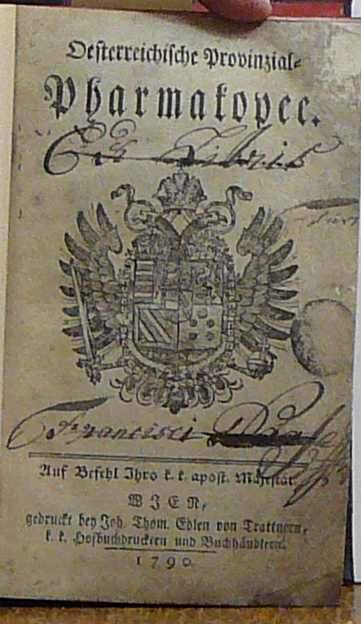 Oesterreichische Provinzial-
Pharmakopee.
Ex Libris
Francisci
Auf Befehl Ihro k. k. apost. Majestät.
WIEN,
gedruckt bey Joh. Thom. Edlen von Trattnern,
k. k. Hofbuchdruckern und Buchhändlern.
1790.